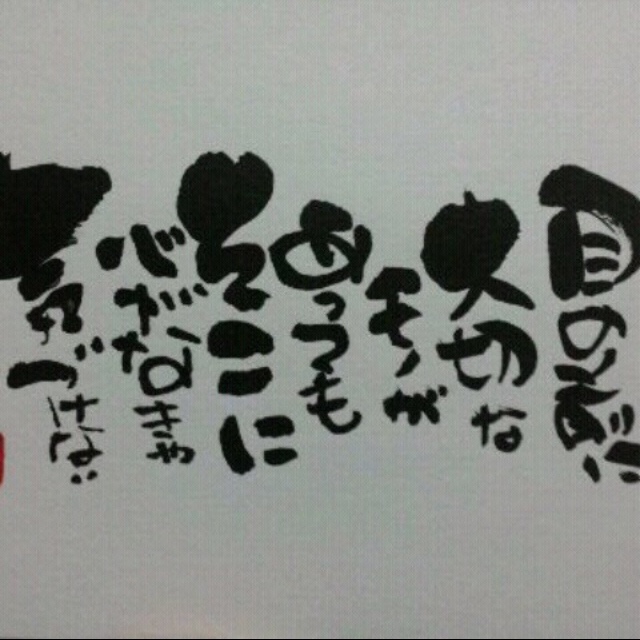 目の前に
大切な
モノが
あっても
そこに
心がなきゃ
気づけない